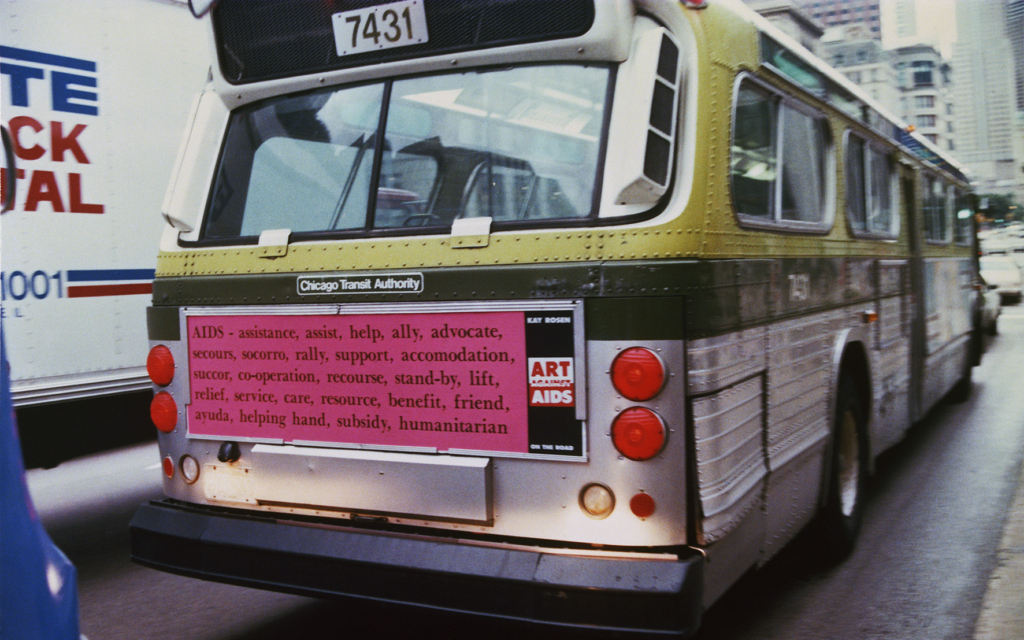 7431
TE
CK
TAL
1001
EL
Chicago Transit Authority
AIDS - assistance, assist, help, ally, advocate,
secours, socorro, rally, support, accomodation,
succor, co-operation, recourse, stand-by, lift,
relief, service, care, resource, benefit, friend,
ayuda, helping hand, subsidy, humanitarian
KAY ROSEN
ART
AGAINST
AIDS
ON THE ROAD
7431